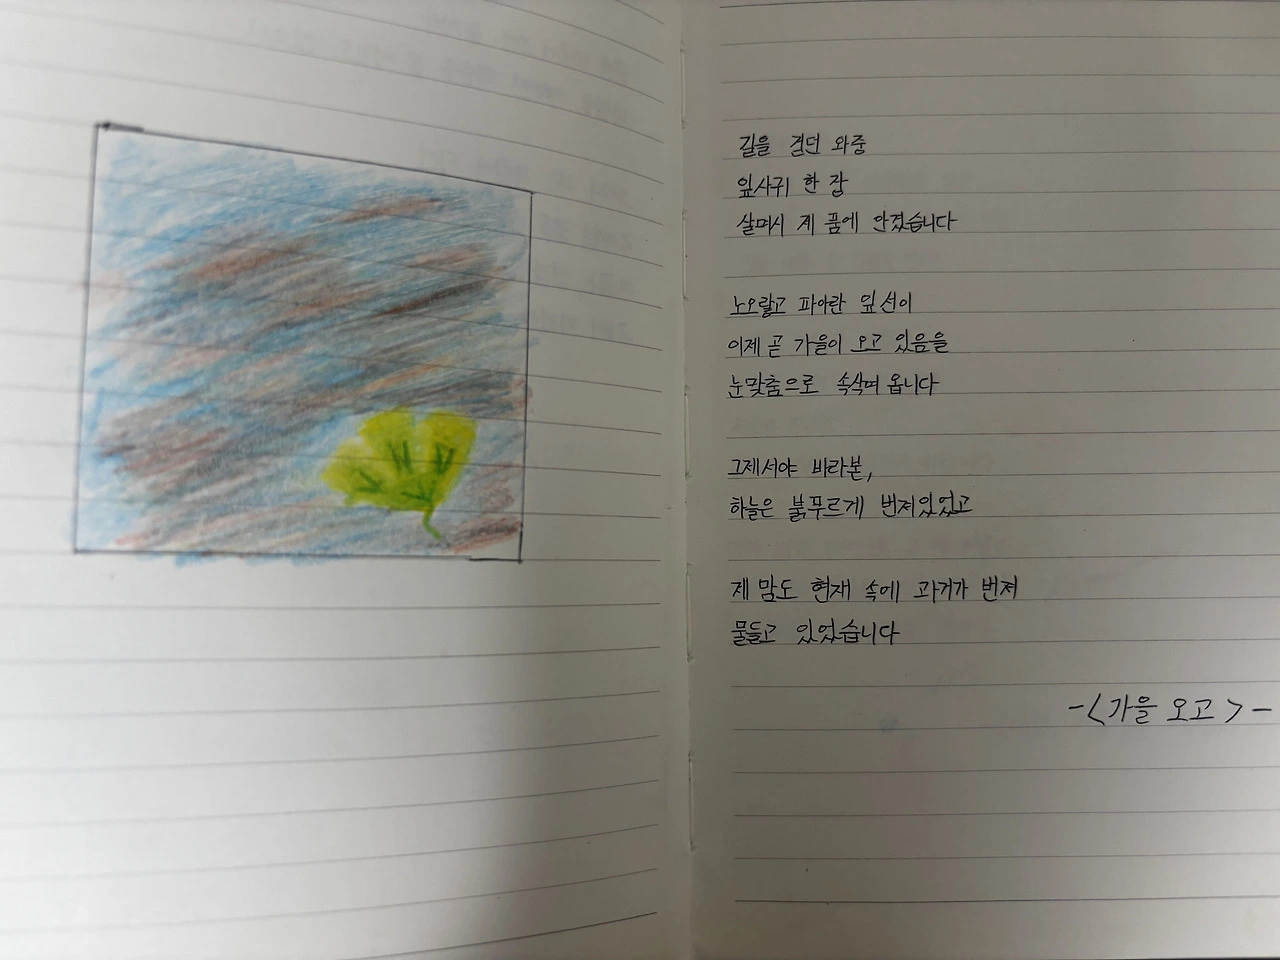 길을 걷던 와중
잎사귀 한 잎
살며시 제 품에 안겼습니다
노오랗고 파아란 잎선이
이제 곧 가을이 오고 있음을
눈맞춤으로 속삭여 옵니다
그제서야 바라본,
하늘은 붉푸르게 번져있었고
제 맘도 현재 속에 과거가 번져
물들고 있었습니다
-<가을 오고>-